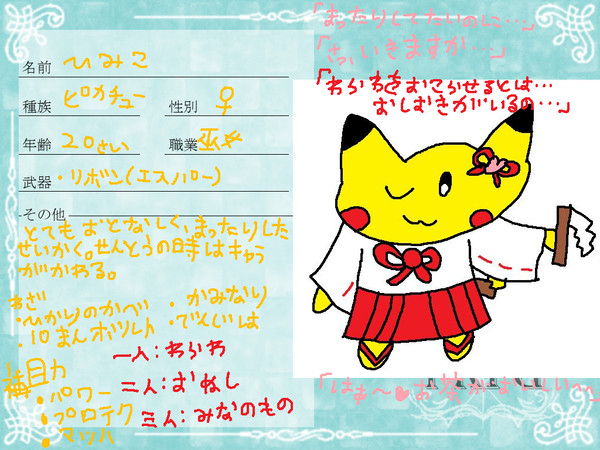 「まったりしてたいのに…」
「さっ、いきますか…」
「わらわをおこらせるとは…
おしおきがいるの…」
名前 ひみこ
種族 ピカチュー 性別 ♀
年齢 20さい 職業 巫女
武器 ・リボン(エスパー)
その他
とてもおとなしく、まったりした
せいかく。せんとうの時はキャラ
がかわる。
わざ
・ひかりのかべ ・かみなり
・10まんボルト ・でんじは
一人：わらわ
二人：おぬし
三人：みなのもの
・パワー
・プロテク
・マッハ
「はぁ〜♥お茶がおいしい〜」